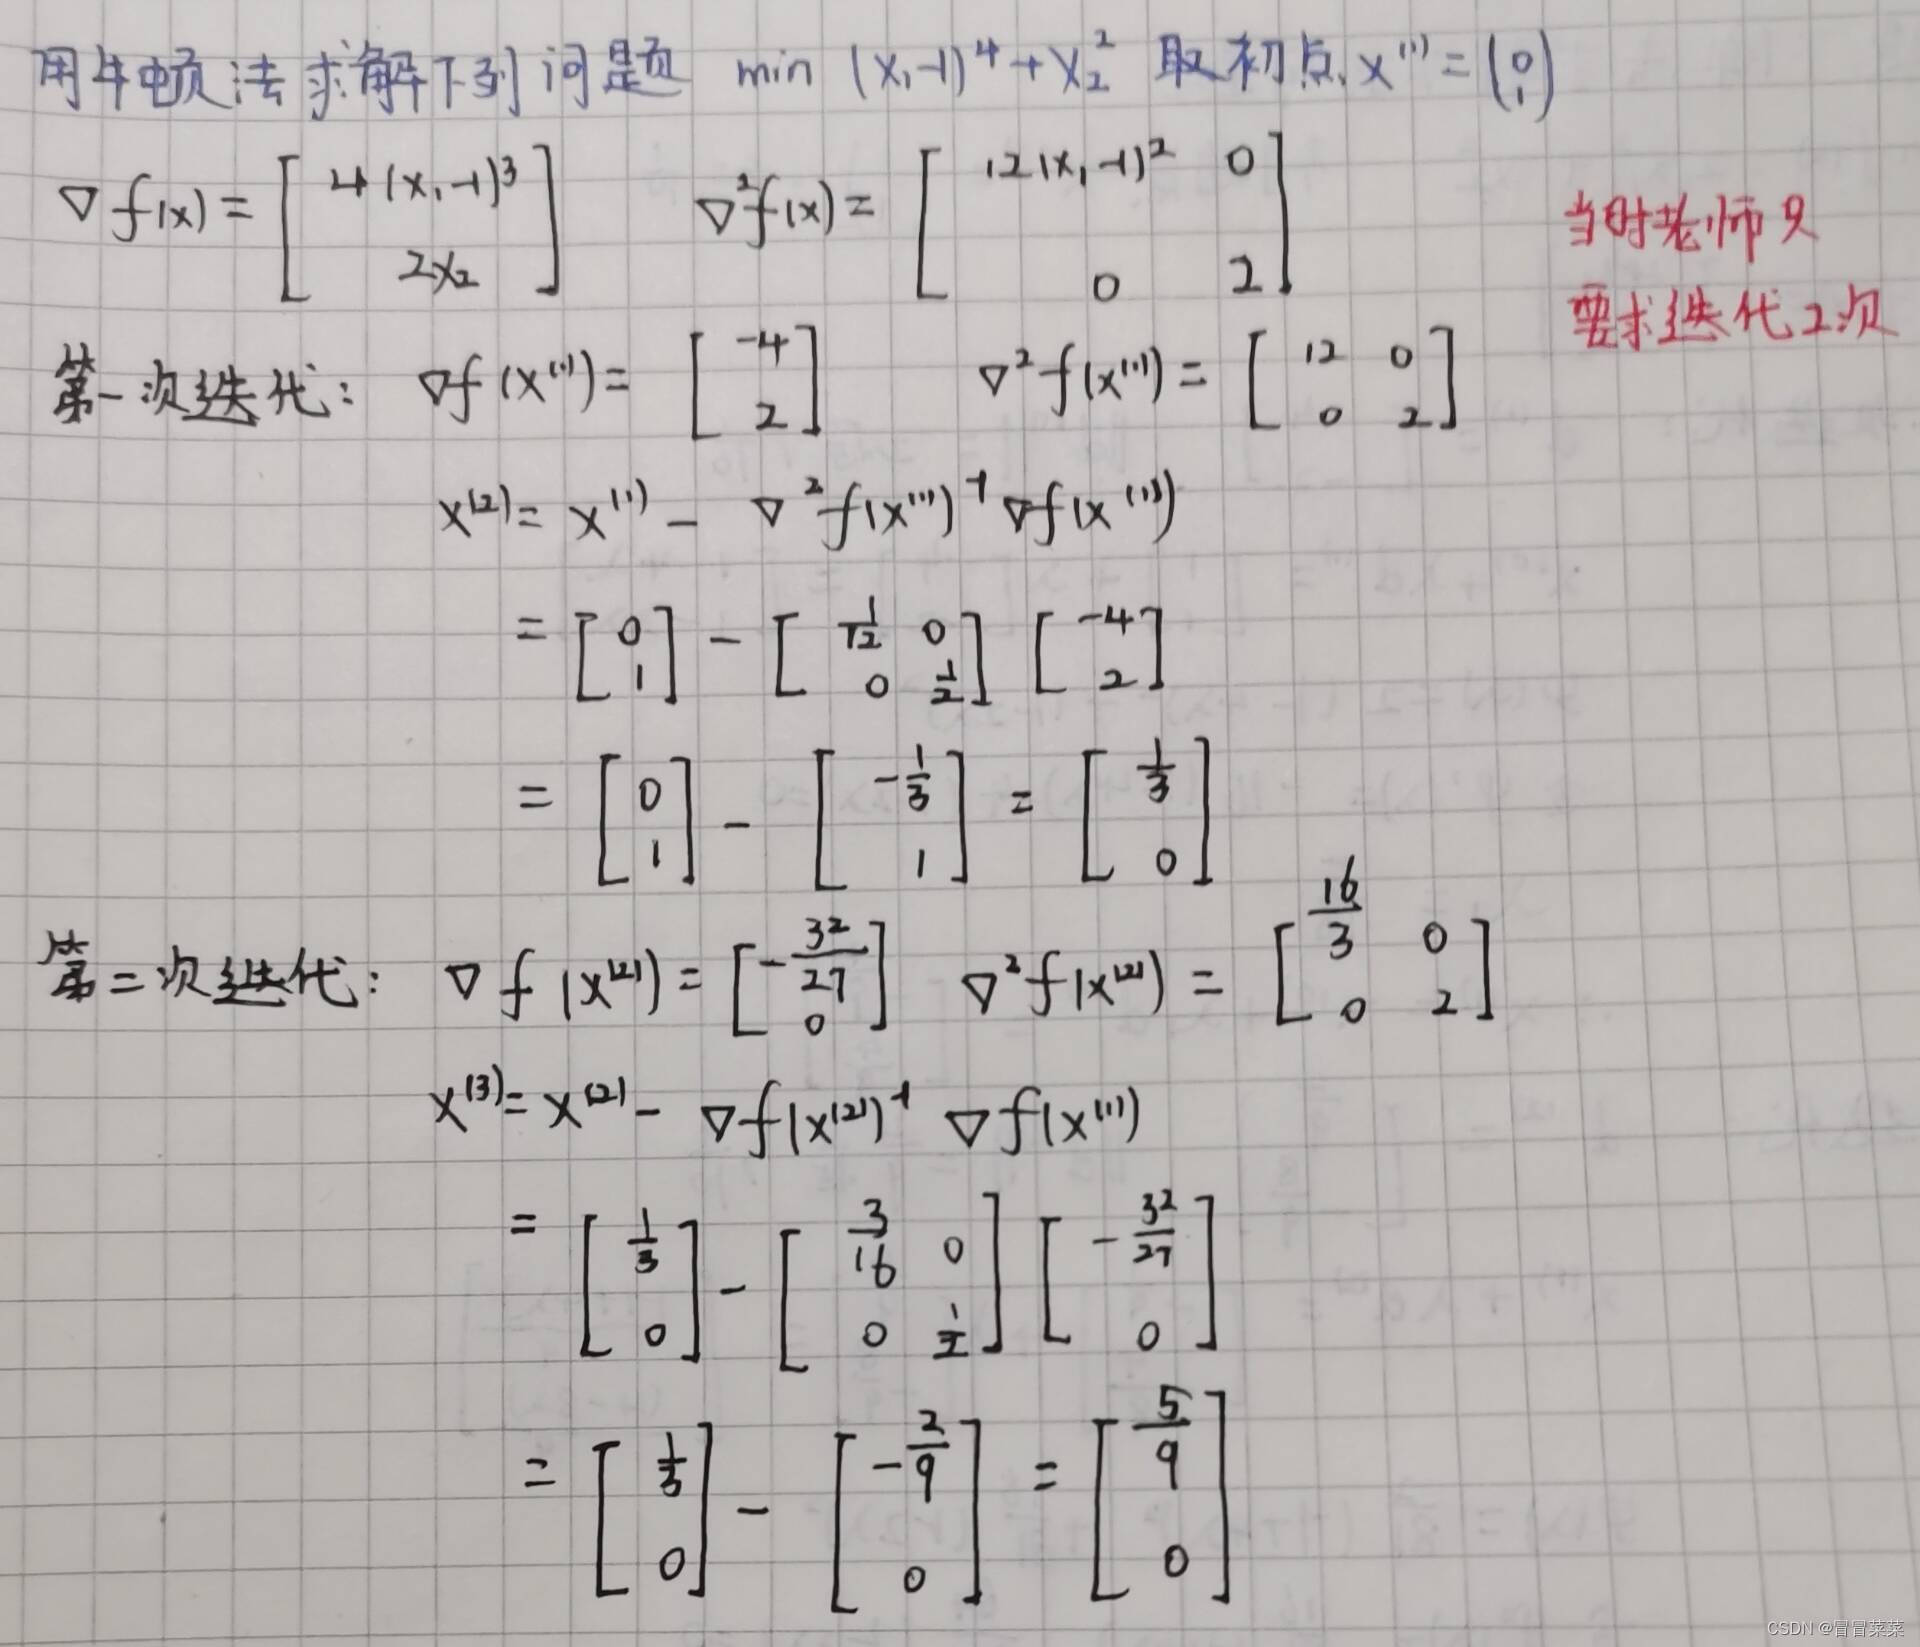 用牛顿法求解下列问题 min (x₁-1)⁴+x₂² 取初点 x⁽¹⁾=(0 1)
∇f(x)=[4(x₁-1)³ 2x₂] ∇²f(x)=[12(x₁-1)² 0 0 2]
当时老师只
要求迭代2次
第一次迭代: ∇f(x⁽¹⁾)=[-4 2] ∇²f(x⁽¹⁾)=[12 0 0 2]
x⁽²⁾=x⁽¹⁾-∇²f(x⁽¹⁾)⁻¹∇f(x⁽¹⁾)
=[0 1]-[1/12 0 0 1/2][-4 2]
=[0 1]-[-1/3 1]=[1/3 0]
第二次迭代: ∇f(x⁽²⁾)=[-32/27 0] ∇²f(x⁽²⁾)=[16/3 0 0 2]
x⁽³⁾=x⁽²⁾-∇f(x⁽²⁾)⁻¹∇f(x⁽¹⁾)
=[1/3 0]-[3/16 0 0 1/2][-32/27 0]
=[1/3 0]-[-2/9 0]=[5/9 0]
CSDN @冒冒菜菜